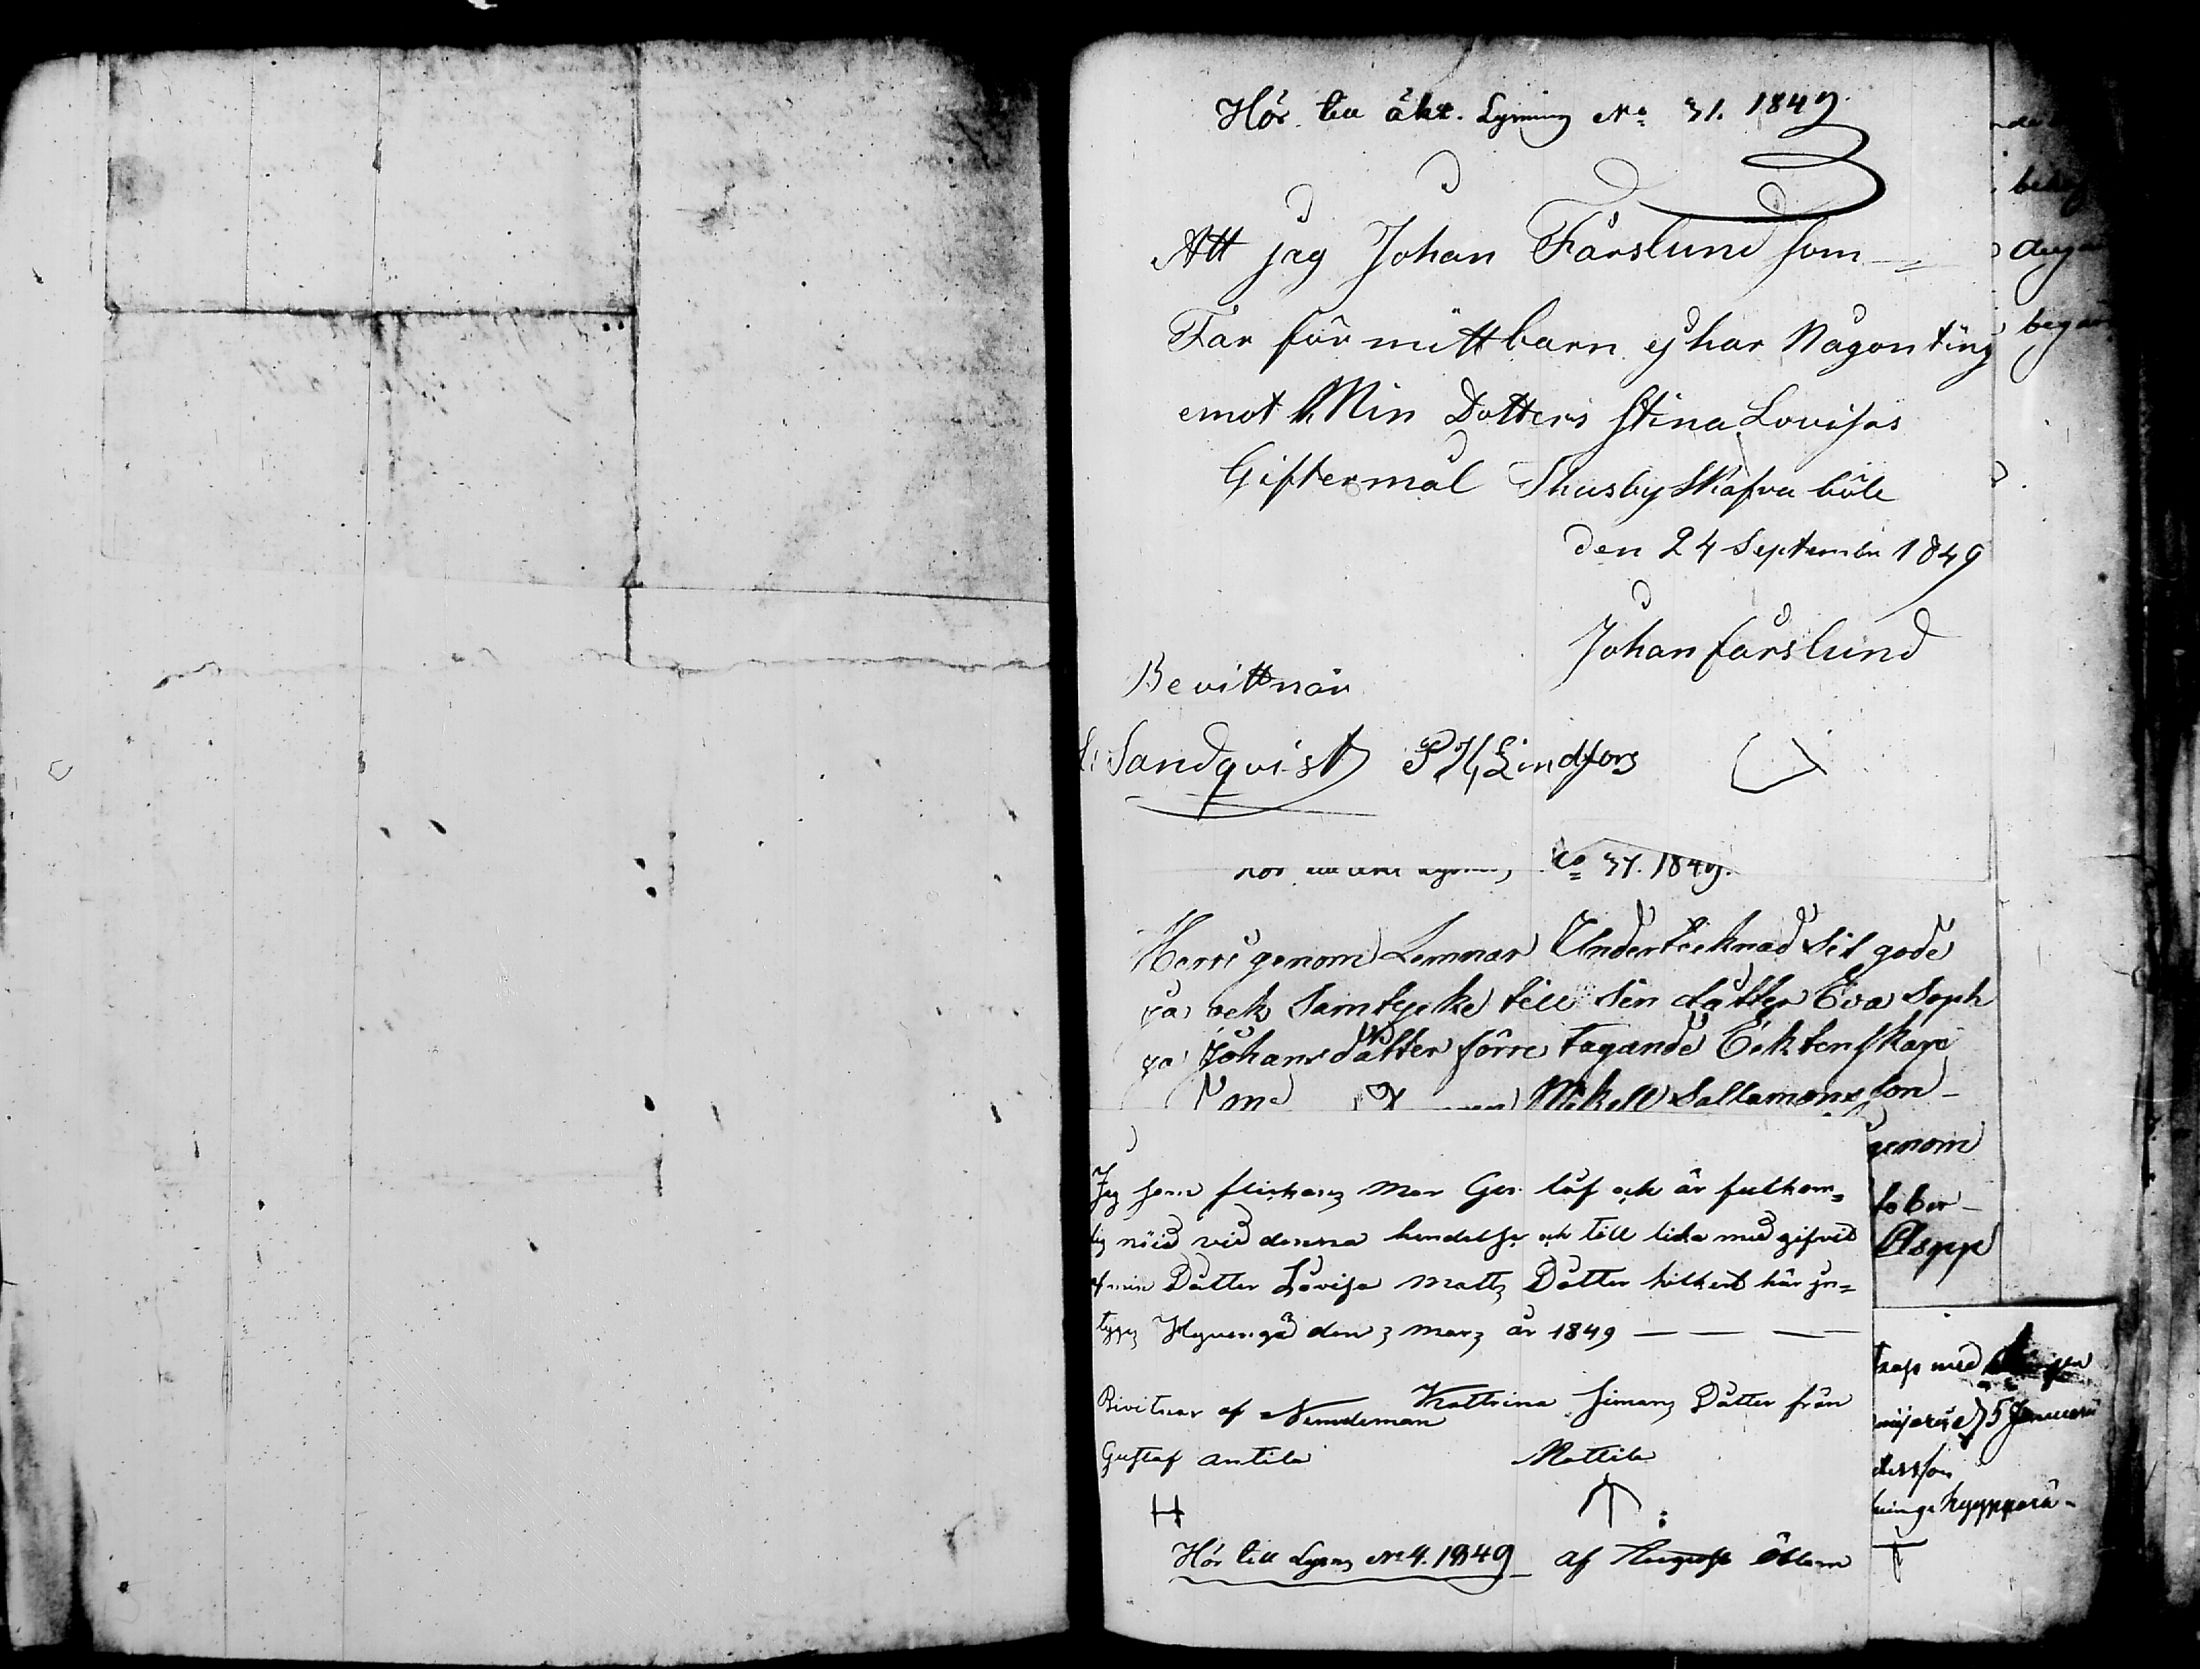 Hör till äkt. Lysning No 31. 1849.
Att jag Johan Fårslund som
Far för mitt barn ej har Någonting
emot Min Dotters Stina Lovisas
Giftermål Thusby Skafvaböle
den 24 September 1849
Johan fårslund
Bevittnar
Sandqvist P H Lindfors
No 37. 1849.
Herrigenom Lemnar Undertieknad Sit gode
ja ock Samtycke till Sin dåtter Eva Soph
ja Johansdåtter förre tagande Ecktenskap
Mikell Sallamonsson
genom
tober
Jag som flickans Mor Ger lof och är fulkom=
lig nöid vid denna hendelse och till lika med gifvit
min Dåtter Lovisa Matts Dåtter hilket här in=
tygas den 3 Mars år 1849
Bivitnar af Nemdeman Kattrina Simans Dåtter från
Gustaf Antila Mattila
Hör till Lysn No 4. 1849 af August
skap med
5 Januari